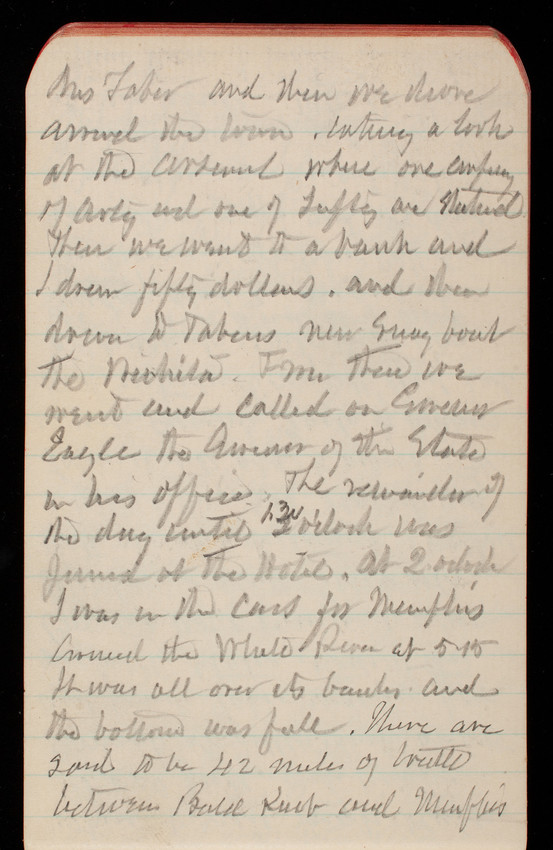 Mrs Taber and then we drove
around the town, taking a look
at the Arsenal where one company
of Arty and one of Infty are stationed.
Then we went to a bank and
I drew fifty dollars, and then
down to Tabers new Snag boat
the Wichita. From there we
went and called on Governor
Eagle the Governor of the State
in his office. The remainder of
the day until 1.30 o'clock was
passed at the Hotel. At 2 oclock
I was in the cars for Memphis
Crossed the White River at 5-15
It was all over its banks and
the bottom was full. There are
said to be 42 miles of trestle
between Bald Knob and Memphis